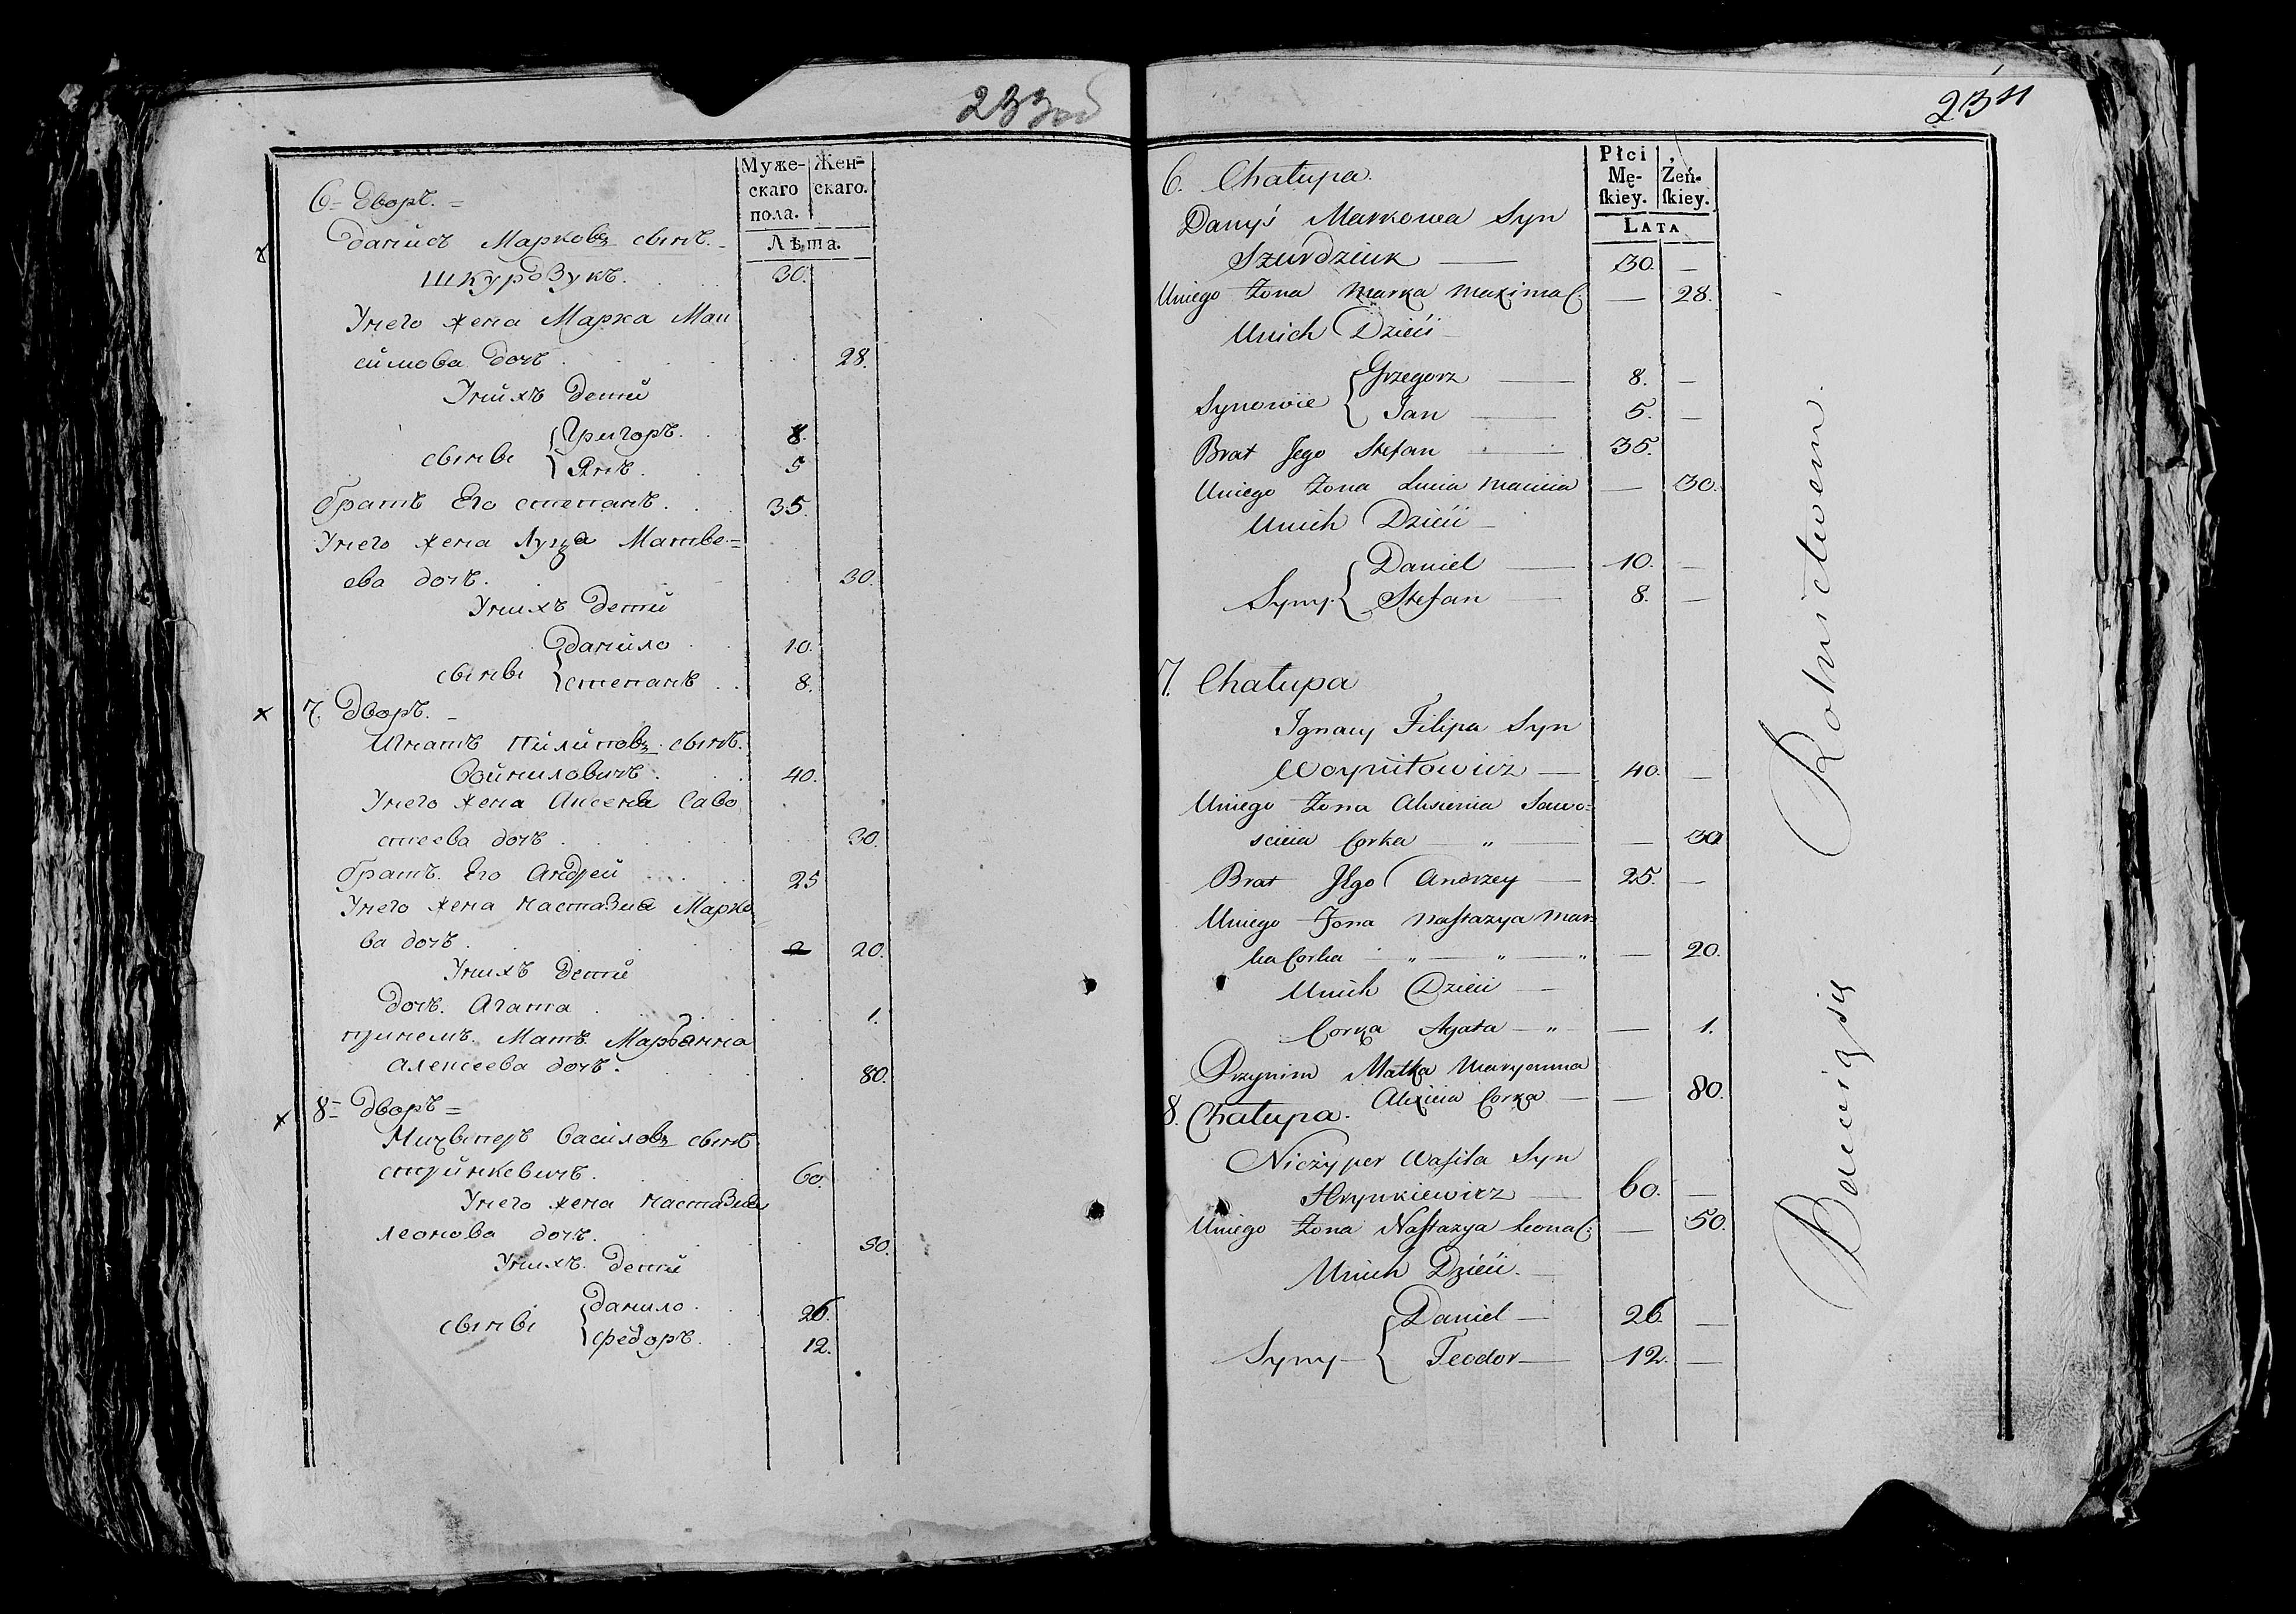 233об
Муже-
скаго
пола.
Жен-
скаго.
Лѣта.
6 = Дворъ. =
Данисъ Марковъ сынъ.
Шкурдзукъ. 30.
Унего жена Марха Мак
симова дочъ 28.
Унихъ дети
сыны Григоръ. 8.
Янъ. 5
братъ Его степанъ. 35.
Унего жена Луца Матве=
ева дочъ. 30.
Унихъ дети
сыны данило 10.
степанъ 8.
7. Дворъ. =
Игнатъ Пилиповъ сынъ.
Войниловичъ. 40.
Унего жена Аксеня Саво
стеева дочъ 30.
братъ. Его Андрей 25
Унего жена настазия Марко
ва дочъ. 20.
Унихъ дети
дочъ. Агата 1.
принемъ. Матъ Марьянна
Алексеева дочъ. 80.
8 = Дворъ =
Ничыперъ Василовъ сынъ
60.
Унего жена настазия
леонова дочъ. 50.
Унихъ. дети
сыны данило. 26.
федоръ. 12.
234
Płci
Mę-
skiey.
Żeń-
skiey.
LATA
6. Chałupa.
Danyś Markowa Syn
Szurdziuk — 30. —
Uniego Żona Marka Maxima C: — 28.
Unich Dzieci —
Synowie Grzegorz — 8. —
Jan — 5. —
Brat Jego Stefan — 35.
Uniego Żona Lucia Macieia — 30.
Unich Dzieci —
Syny Daniel — 10. —
Stefan — 8. —
7. Chałupa
Ignacy Filipa Syn
Woyniłowicz — 40. —
Uniego Żona Axienia Sawo=
scieia Corka — „ — — 30
Brat Jego Andrzey — 25. —
Uniego Żona Nastazya Mar=
ka Corka — „ — „ — „ — 20.
Unich Dzieci —
Corka Agata — „ — 1.
Przynim Matka Maryanna
Alexieia Corka — — 80.
8. Chałupa.
Niczyper Wasila Syn
Hrynkiewicz — 60. —
Uniego Żona Nastazya Leona C: — 50.
Unich Dzieci. —
Syny — Daniel — 26. —
Teodor — 12. —
Bawią się Rolnictwem.